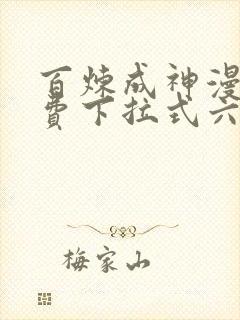 百炼成神漫
费下拉式六
梅家山